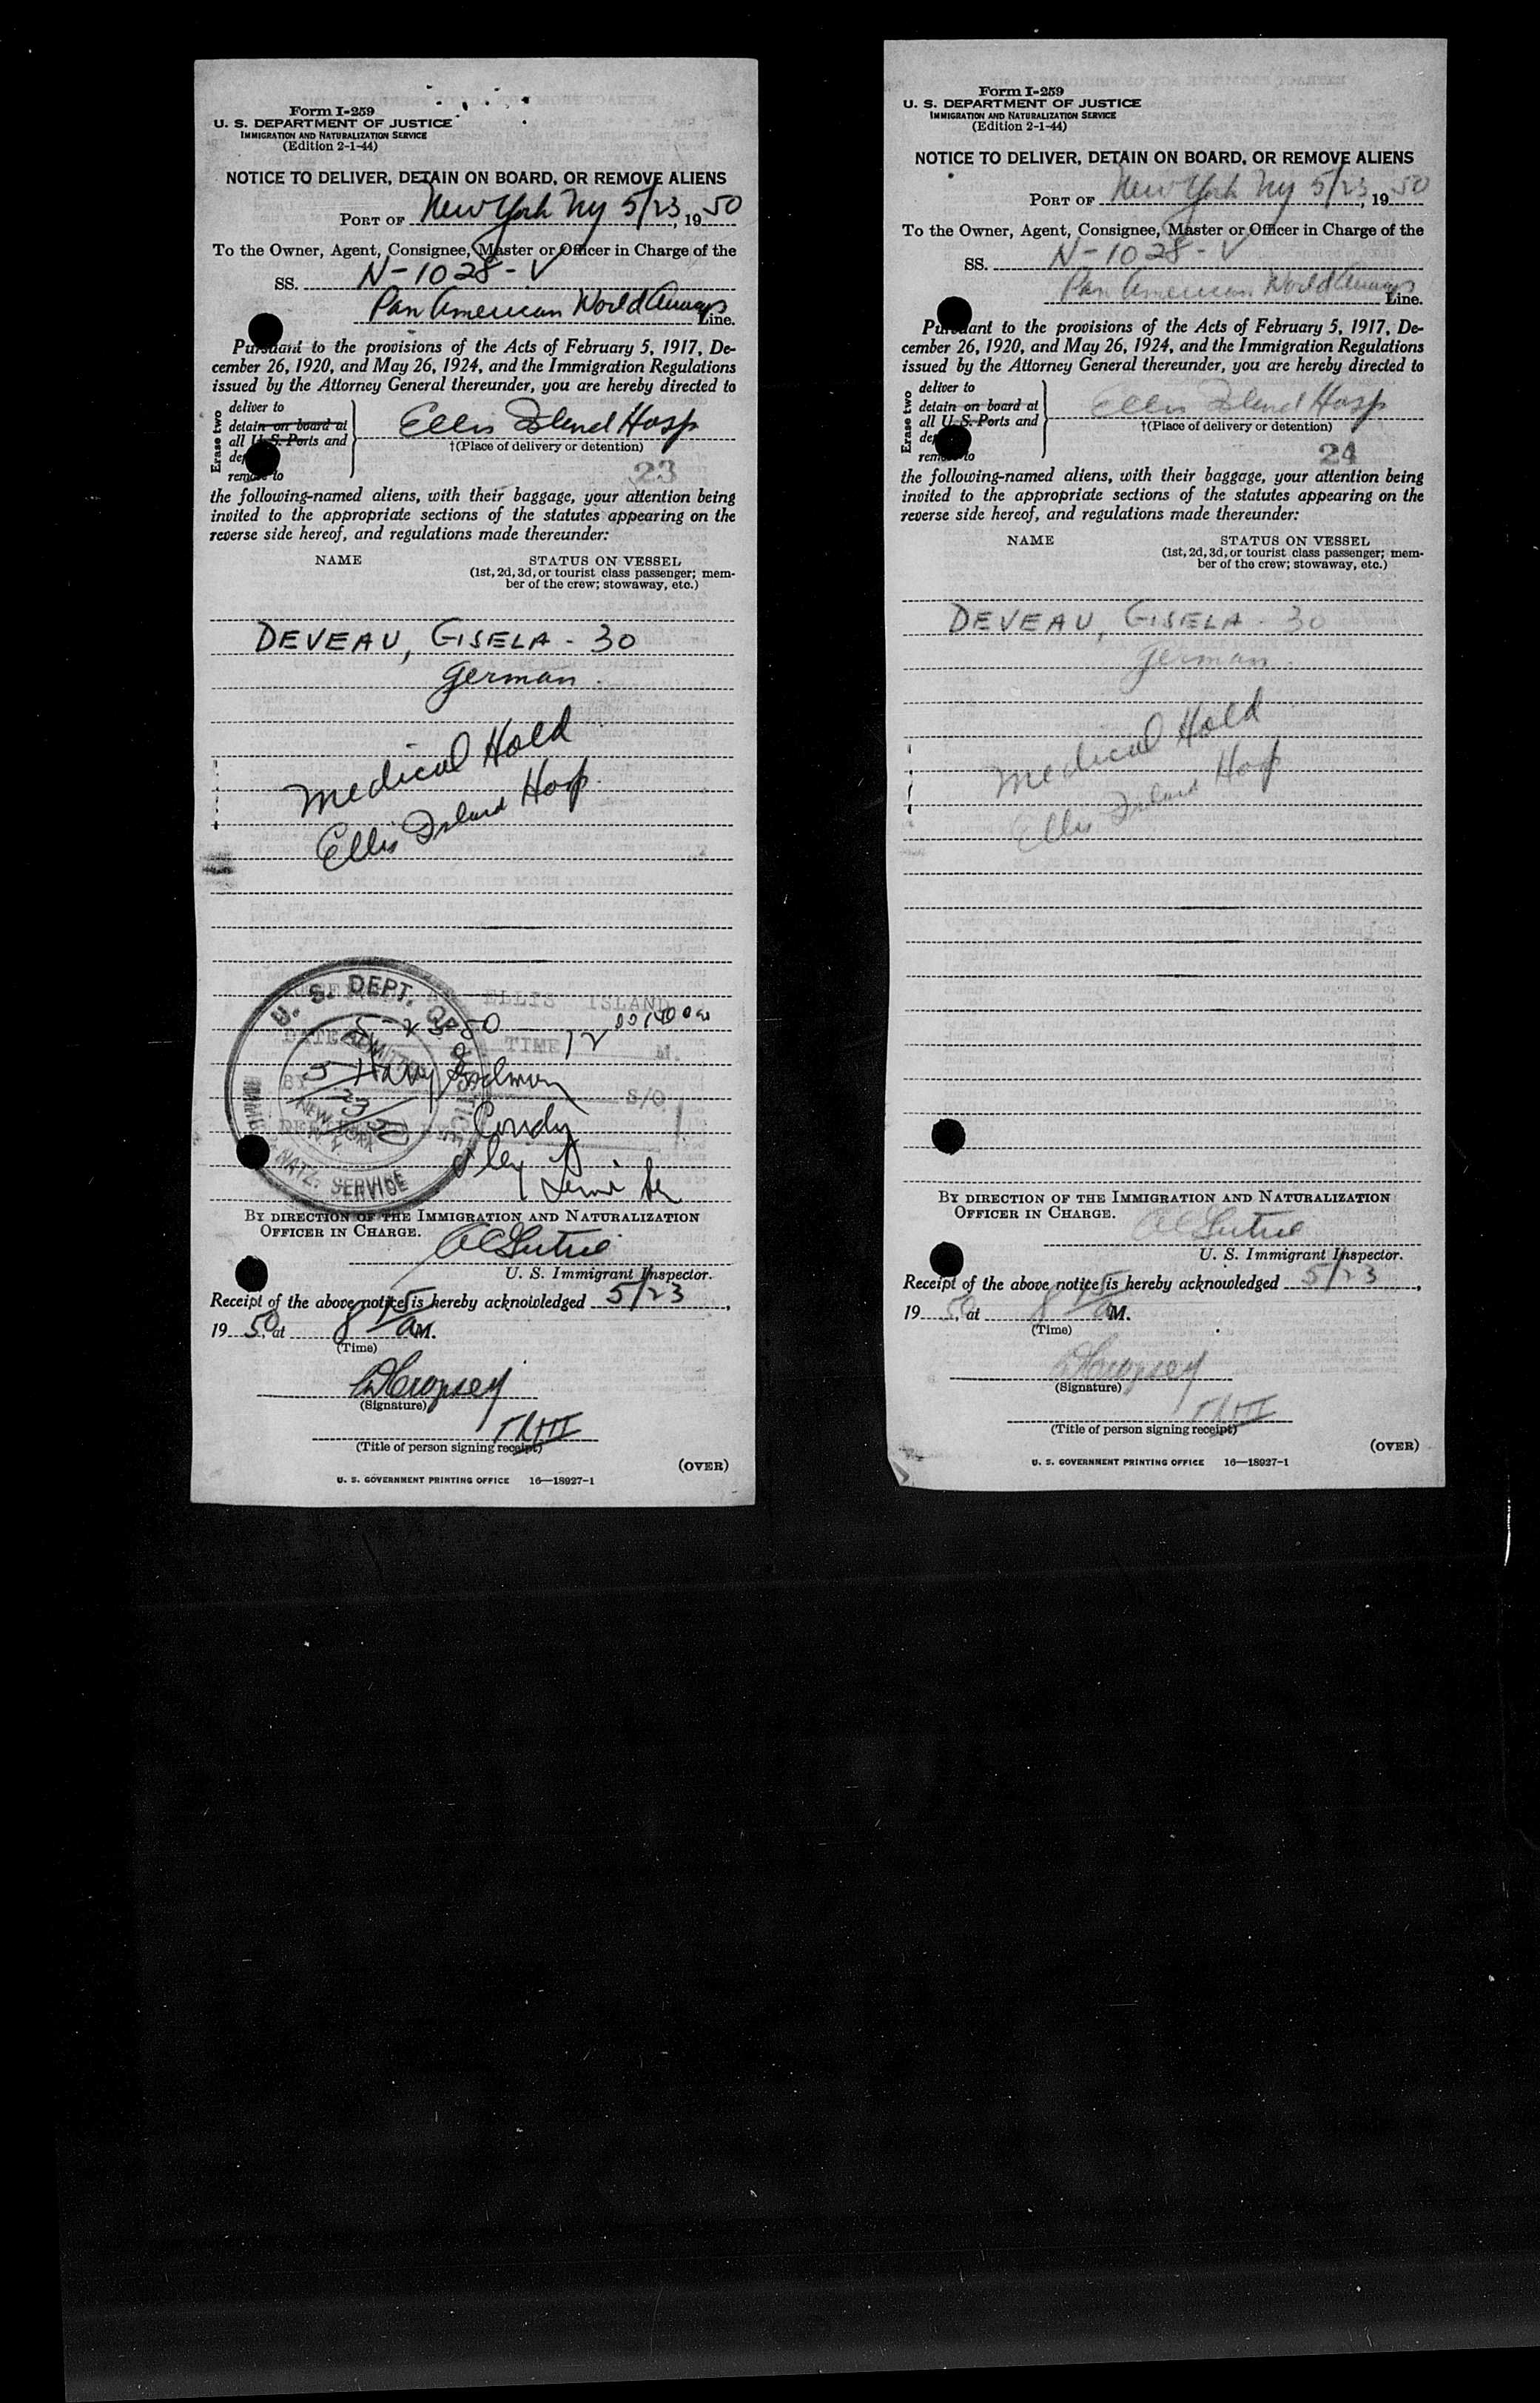 Form I-259
U. S. DEPARTMENT OF JUSTICE
IMMIGRATION AND NATURALIZATION SERVICE
(Edition 2-1-44)
NOTICE TO DELIVER, DETAIN ON BOARD, OR REMOVE ALIENS
PORT OF New York NY 5/23, 19 50
To the Owner, Agent, Consignee, Master or Officer in Charge of the
SS. N-1028-V
Pan American World Airways Line.
Pursuant to the provisions of the Acts of February 5, 1917, De-
cember 26, 1920, and May 26, 1924, and the Immigration Regulations
issued by the Attorney General thereunder, you are hereby directed to
Erase two
deliver to
detain on board at
all U. S. Ports and
remove to
Ellis Island Hosp
†(Place of delivery or detention)
23
the following-named aliens, with their baggage, your attention being
invited to the appropriate sections of the statutes appearing on the
reverse side hereof, and regulations made thereunder:
NAME STATUS ON VESSEL
(1st, 2d, 3d, or tourist class passenger; mem-
ber of the crew; stowaway, etc.)
DEVEAU, GISELA - 30
German.
Medical Hold
Ellis Island Hosp.
U. S. DEPT. OF JUSTICE
ELLIS ISLAND
5-23-50
DATE TIME 12 M.
ADMITTED
BY Harry S/O
5/23/50
NEW YORK
N. Y.
NATZ. SERVICE
BY DIRECTION OF THE IMMIGRATION AND NATURALIZATION
OFFICER IN CHARGE.
U. S. Immigrant Inspector.
Receipt of the above notice is hereby acknowledged 5/23,
19 50, at 8 15/a M.
(Time)
(Signature)
(Title of person signing receipt)
(OVER)
U. S. GOVERNMENT PRINTING OFFICE 16—18927-1
Form I-259
U. S. DEPARTMENT OF JUSTICE
IMMIGRATION AND NATURALIZATION SERVICE
(Edition 2-1-44)
NOTICE TO DELIVER, DETAIN ON BOARD, OR REMOVE ALIENS
PORT OF New York NY 5/23, 19 50
To the Owner, Agent, Consignee, Master or Officer in Charge of the
SS. N-1028-V
Pan American World Airways Line.
Pursuant to the provisions of the Acts of February 5, 1917, De-
cember 26, 1920, and May 26, 1924, and the Immigration Regulations
issued by the Attorney General thereunder, you are hereby directed to
Erase two
deliver to
detain on board at
all U. S. Ports and
remove to
Ellis Island Hosp
†(Place of delivery or detention)
24
the following-named aliens, with their baggage, your attention being
invited to the appropriate sections of the statutes appearing on the
reverse side hereof, and regulations made thereunder:
NAME STATUS ON VESSEL
(1st, 2d, 3d, or tourist class passenger; mem-
ber of the crew; stowaway, etc.)
DEVEAU, GISELA - 30
German.
Medical Hold
Ellis Island Hosp
BY DIRECTION OF THE IMMIGRATION AND NATURALIZATION
OFFICER IN CHARGE.
U. S. Immigrant Inspector.
Receipt of the above notice is hereby acknowledged 5/23,
19 50, at 8 15/a M.
(Time)
(Signature)
(Title of person signing receipt)
(OVER)
U. S. GOVERNMENT PRINTING OFFICE 16—18927-1